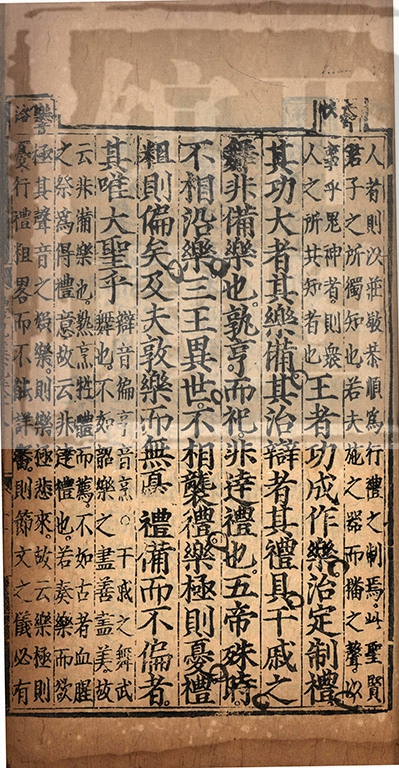 人者則以莊敬恭順爲行禮之制焉。此聖賢
君子之所獨知也。若夫施之器而播之聲以
事乎鬼神者則衆
人之所共知者也
王者功成作樂。治定制禮
其功大者其樂備。其治辯者其禮具。干戚之
舞非備樂也。孰亨而祀。非達禮也。五帝殊時。
不相沿樂。三王異世。不相襲禮。樂極則憂。禮
粗則偏矣。及夫敦樂而無憂。禮備而不偏者。
其唯大聖乎
辯音徧亨音烹。干戚之舞武
舞也。不如韶樂之盡善盡美故
云非備樂也。熟烹牲體而薦。不如古者血腥
之祭爲得禮意故云非達禮也。若奏樂而欲
極其聲音之娛樂。則樂極悲來。故云樂極則
憂。行禮粗畧而不能詳審。則節文之儀必有